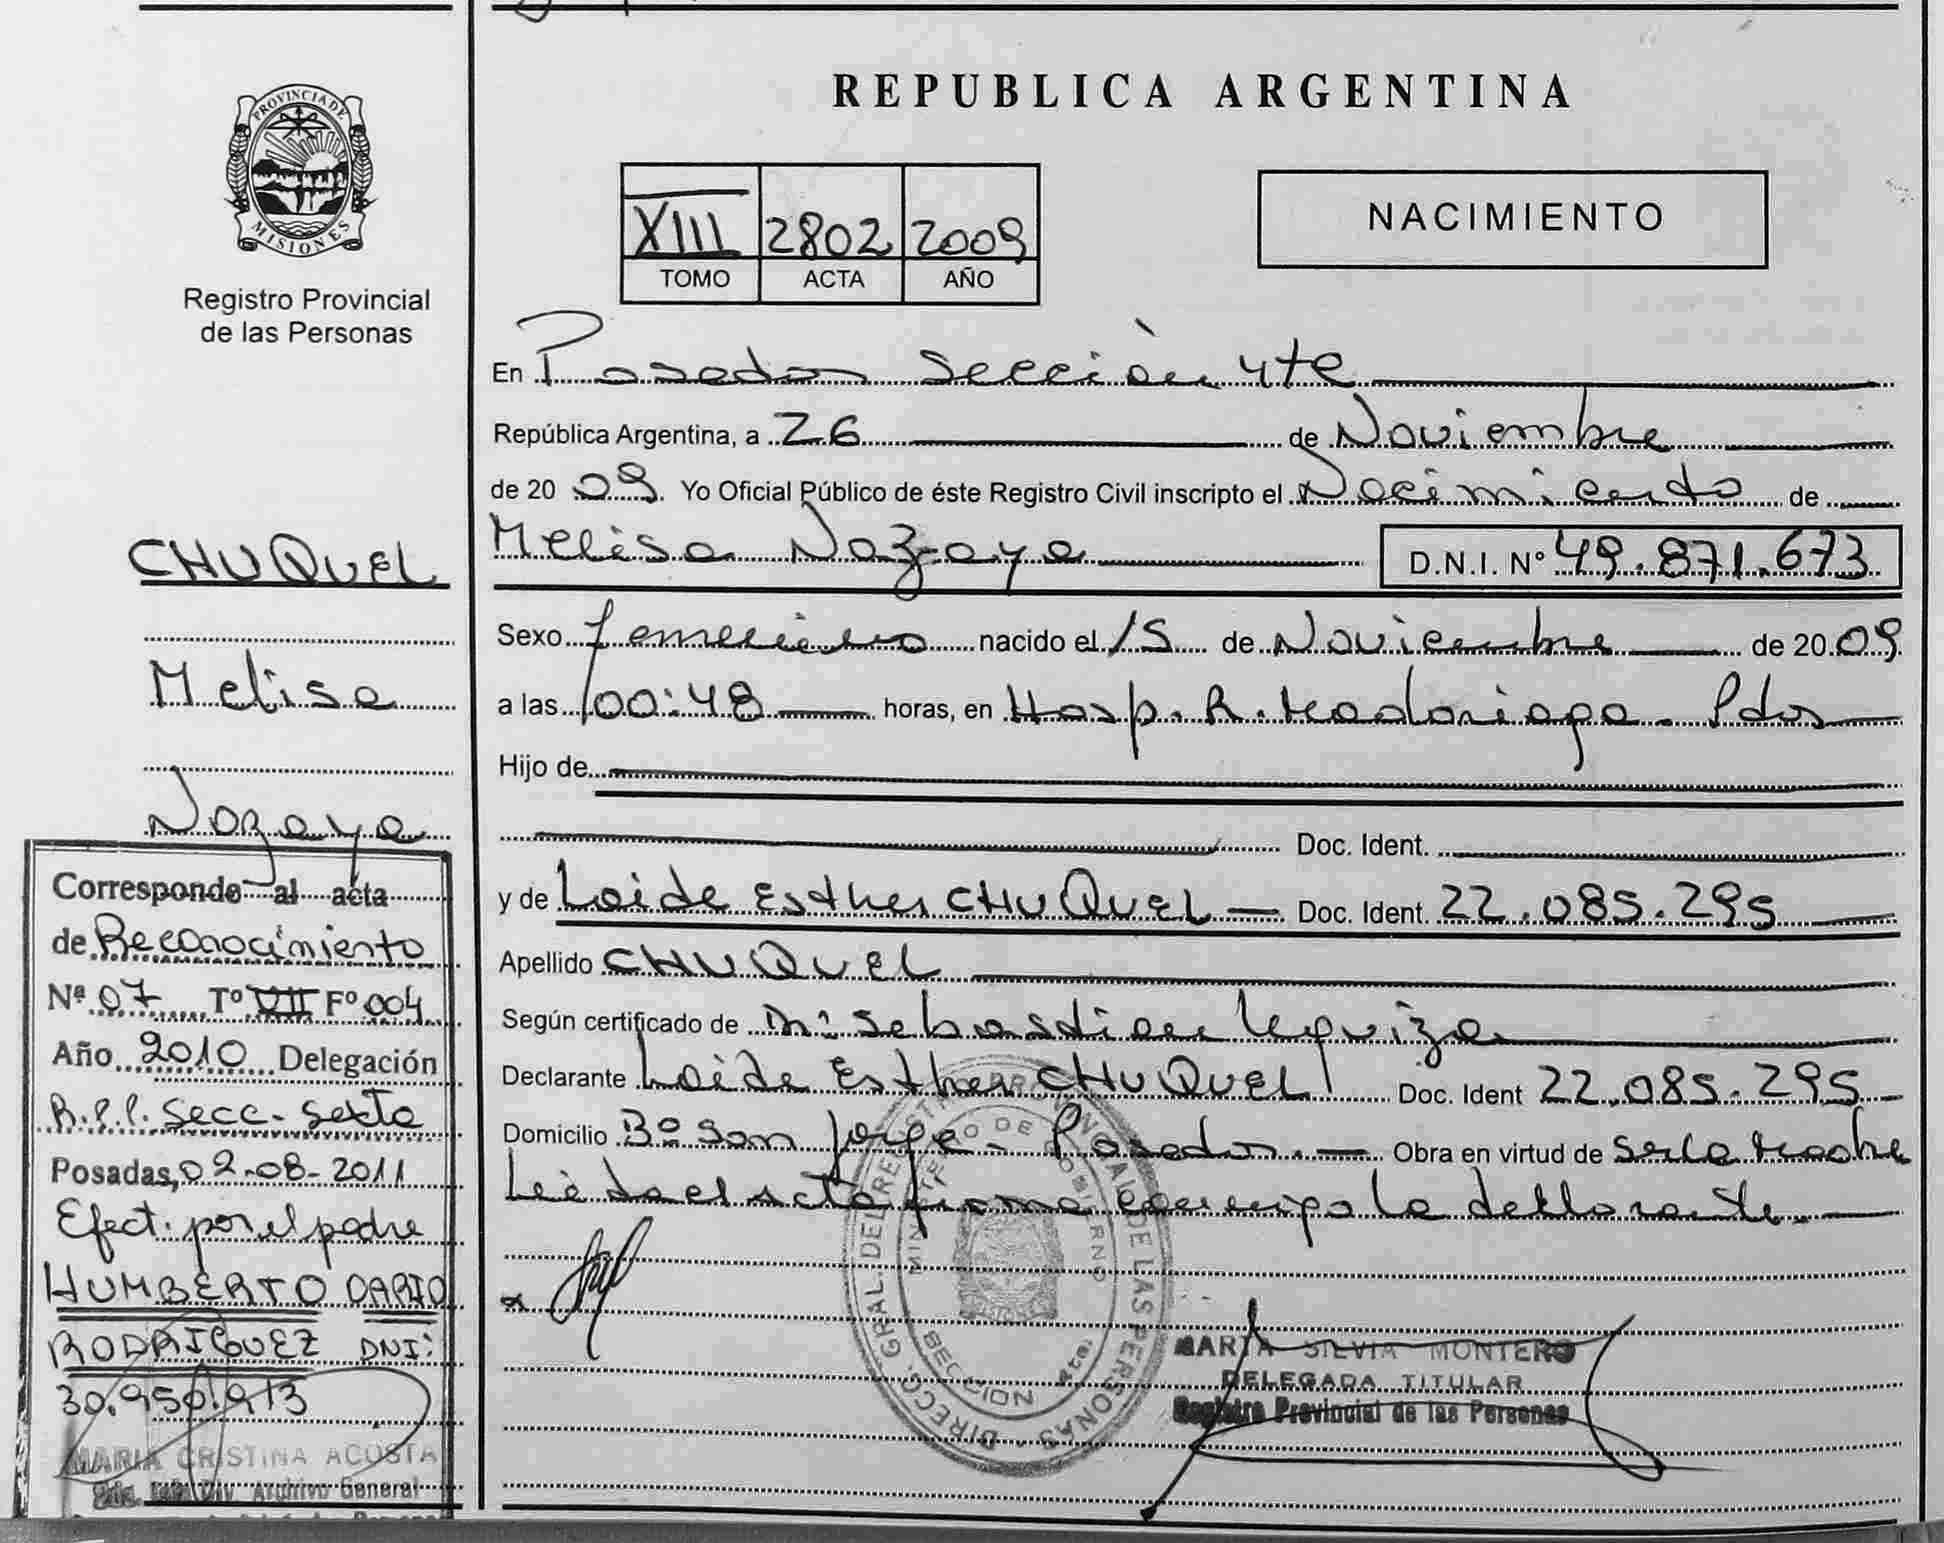 PROVINCIA DE
MISIONES
Registro Provincial
de las Personas
CHUQUEL
Melisa
Nazaya
Corresponde al acta
de Reconocimiento
Nº 07 Tº VII Fº 004
Año 2010 Delegación
R.P.P. Secc. Sexta
Posadas, 02-08-2011
Efect. por el padre
HUMBERTO DARIO
RODRIGUEZ DNI:
30.950.913
MARIA CRISTINA ACOSTA
Div. Archivo General
REPUBLICA ARGENTINA
XIII 2802 2009
TOMO ACTA AÑO
NACIMIENTO
En Posadas Sección 4ta
República Argentina, a 26 de Noviembre
de 20 09. Yo Oficial Público de éste Registro Civil inscripto el Nacimiento de
Melisa Nazaya D.N.I. Nº 49.871.673
Sexo femenino nacido el 15 de Noviembre de 20 09
a las 00:48 horas, en Hosp. R. Madariaga - Pdas
Hijo de
Doc. Ident.
y de Loide Esther CHUQUEL Doc. Ident. 22.085.295
Apellido CHUQUEL
Según certificado de Sebastian Urquiza
Declarante Loide Esther CHUQUEL Doc. Ident 22.085.295
Domicilio Bº San Jorge - Posadas. Obra en virtud de ser la madre
Leida el acta firma conmigo la declarante.
DIRECC. GRAL. DEL REGISTRO PROVINCIAL DE LAS PERSONAS
MINISTERIO DE GOBIERNO
SECCION 4ta.
MARTA SILVIA MONTERO
DELEGADA TITULAR
Registro Provincial de las Personas